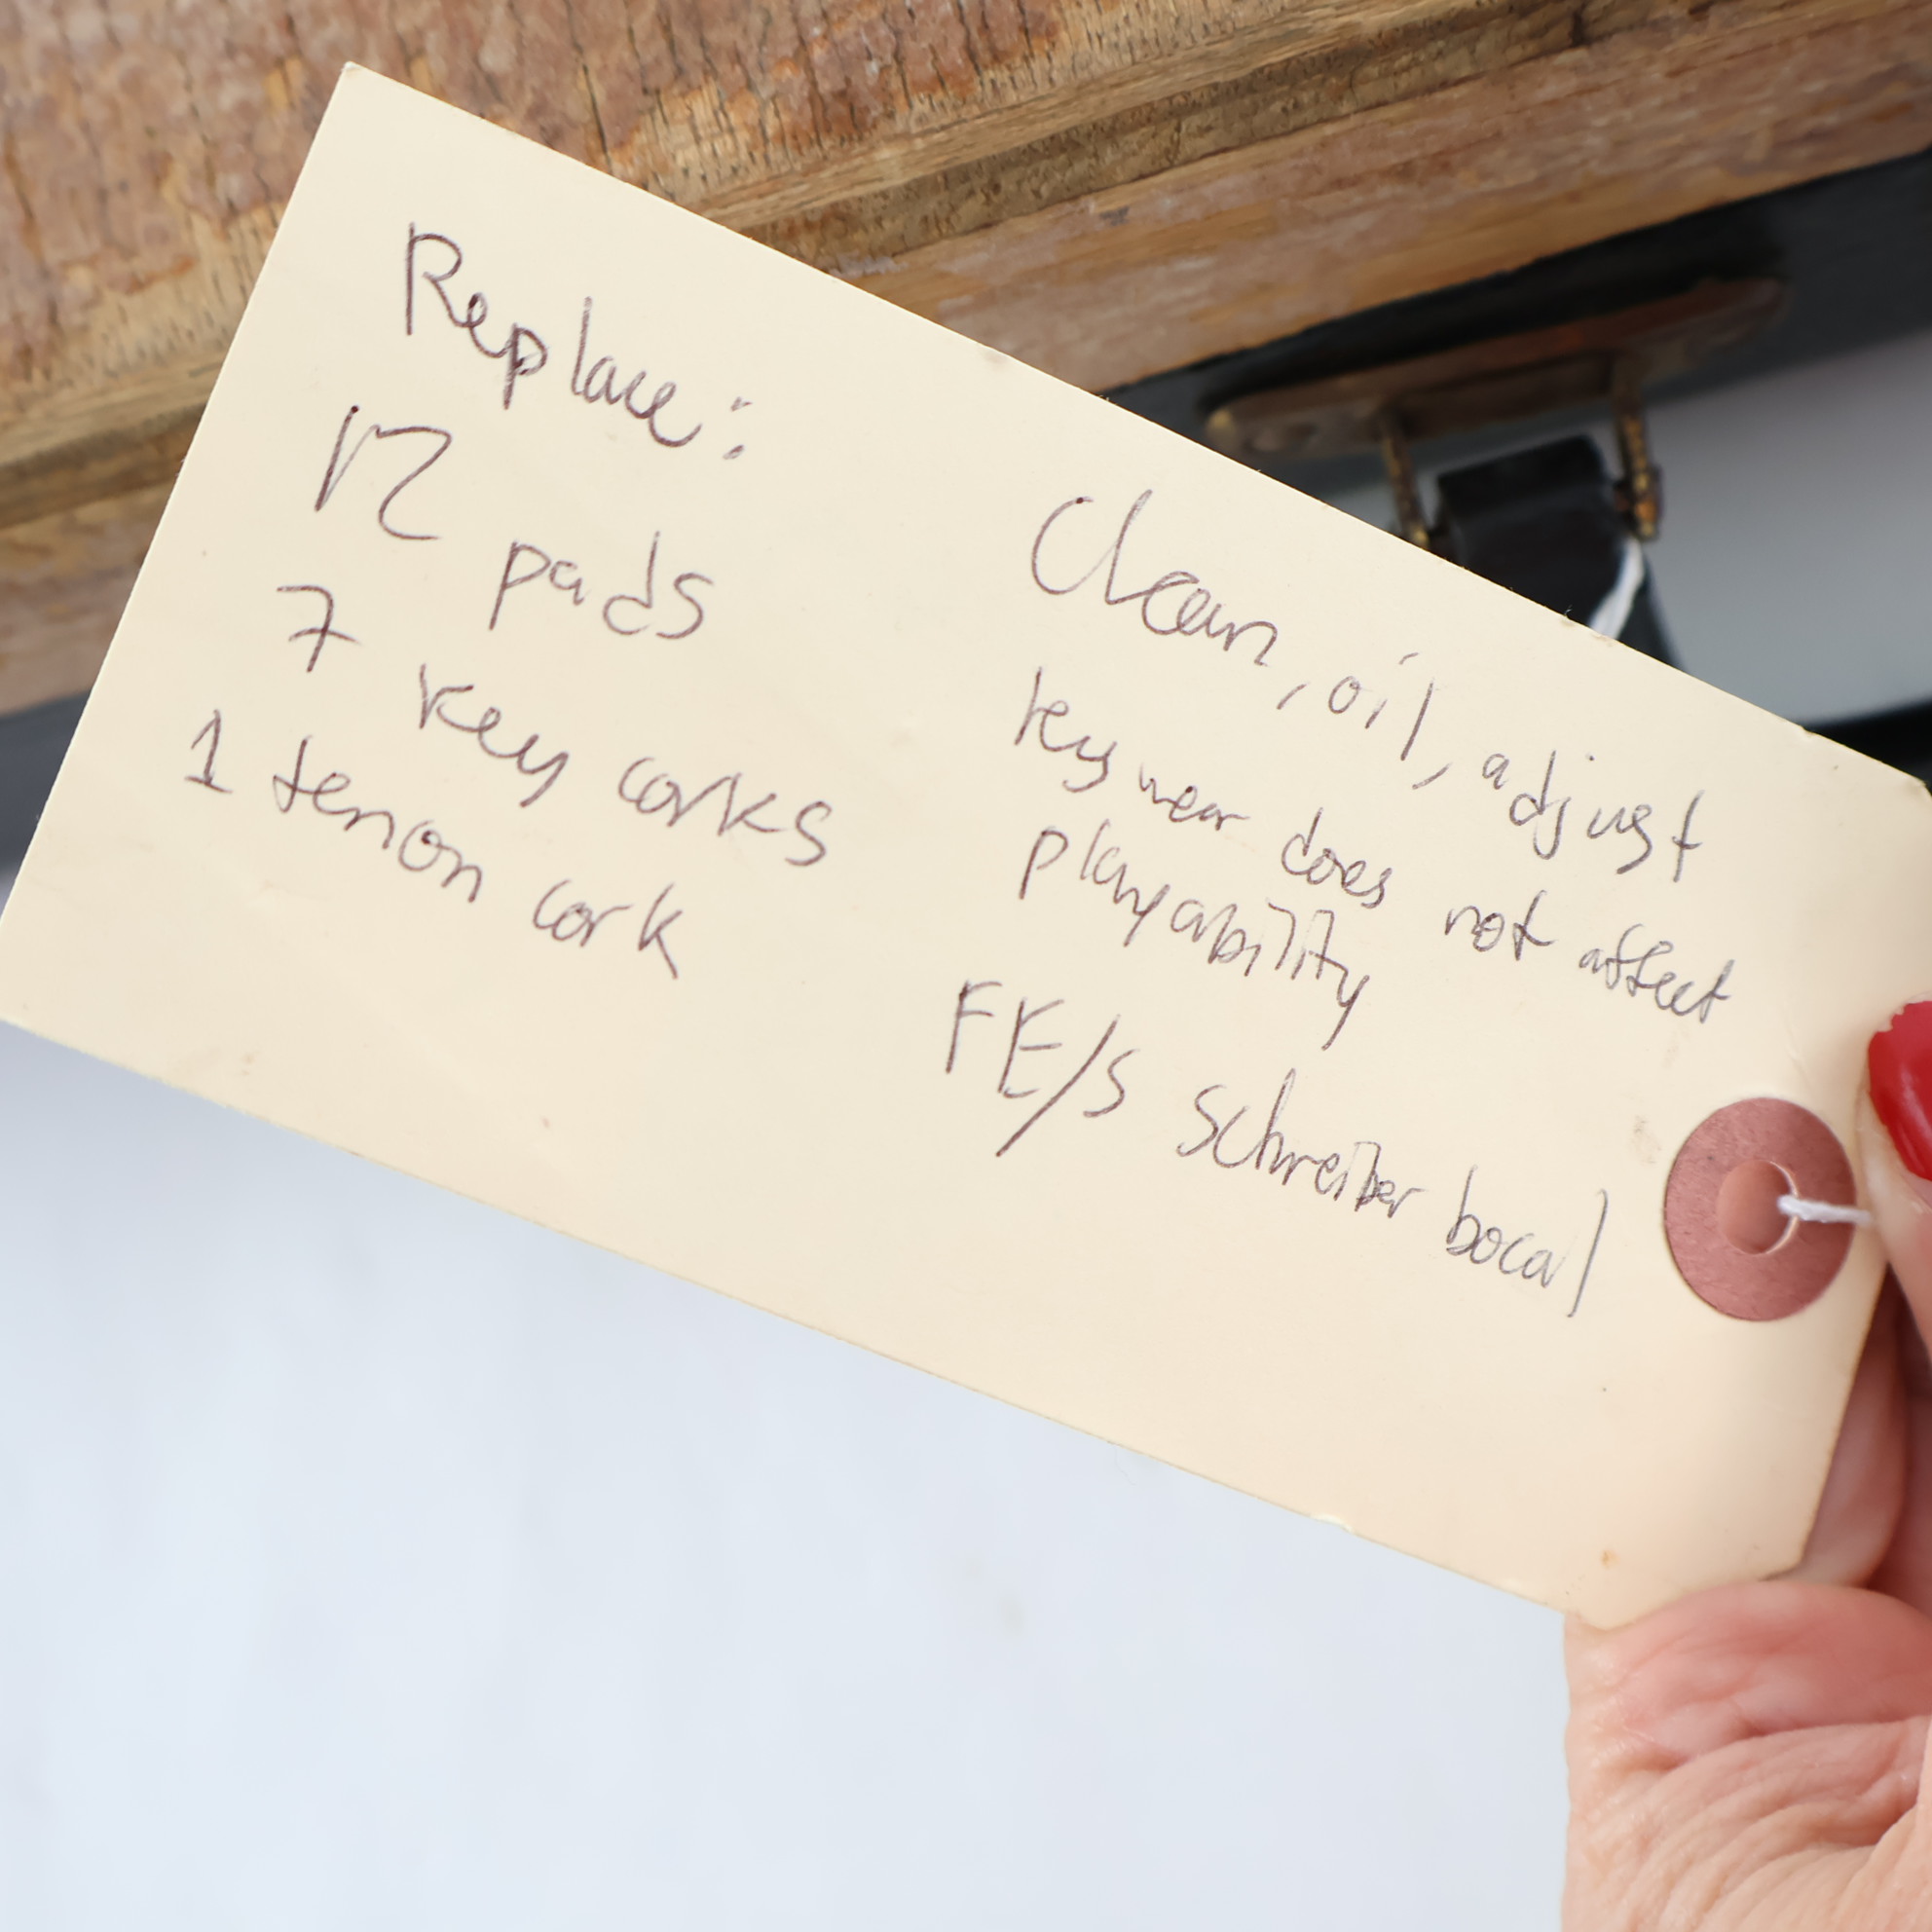 Replace:
12 pads
7 key corks
1 tenon cork
Clean, oil, adjust
key wear does not affect
playability
FE/S Schreiber bocal